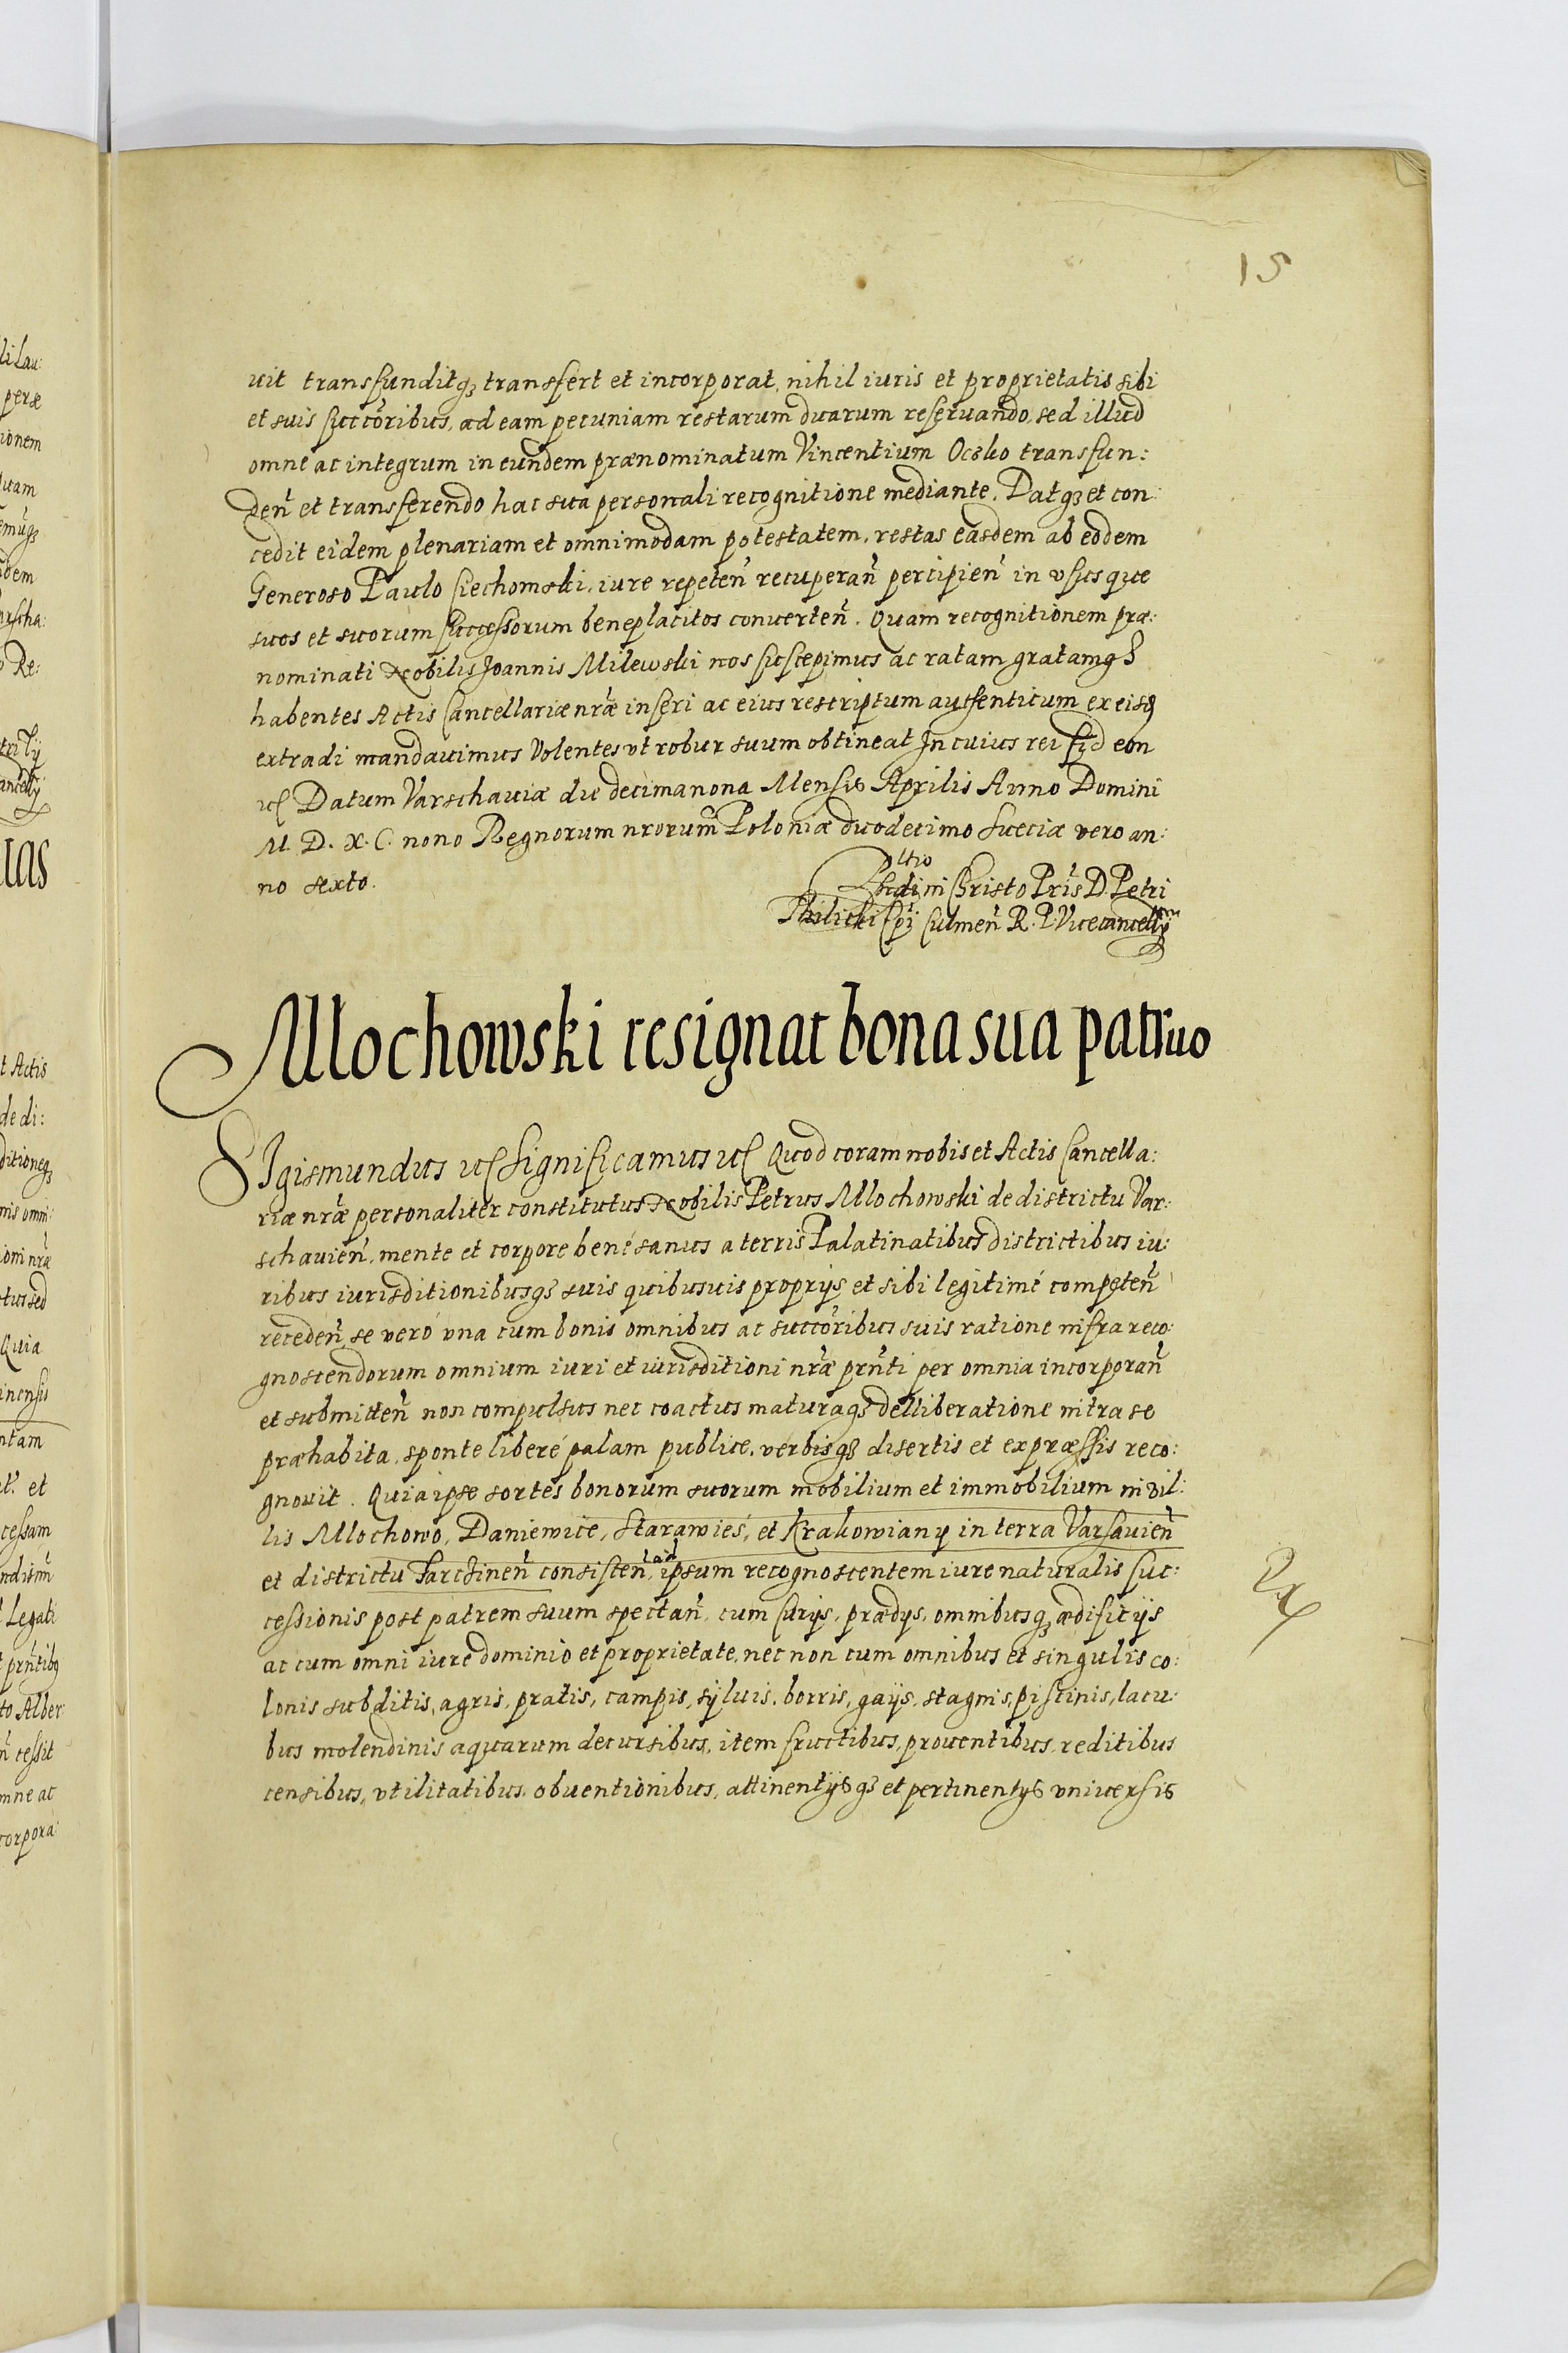 15
uit transfunditq₃ transfert et incorporat, nihil iuris et proprietatis sibi
et suis succõribus, ad eam pecuniam restarum duarum reseruando, sed illud
omne ac integrum in eundem prænominatum Vincentium Ocsko transfun:
deñ et transferendo hac sua personali recognitione mediante. Datq₃ et con:
cedit eidem plenariam et omnimodam potestatem, restas easdem ab eodem
Generoso Paulo Ciechomski, iure repeteñ recuperañ percipieñ in vsusque
suos et suorum successorum beneplacitos conuerteñ. Quam recognitionem præ:
nominati Nobilis Joannis Milewski nos suscepimus ac ratam gratamq₃
habentes Actis Cancellariæ nr̃æ inseri ac eius rescriptum authenticum ex eisd
extradi mandauimus Volentes vt robur suum obtineat In cuius rei fid em
uc Datum Varschauiæ die decimanona Mensis Aprilis Anno Domini
M. D. X. C. nono Regnorum nrorum̃ Poloniæ duodecimo Sueciæ vero an:
no sexto.
ltio
Rndi in Christo Pr̃is D. Petri
Thilicki Epĩ Culmeñ R. P. Vicecancellẙ
Mlochowski resignat bona sua patruo
SIgismundus uc Significamus uc Quod coram nobis et Actis Cancella:
riæ nr̃æ personaliter constitutus Nobilis Petrus Mlochowski de districtu Var:
schauieñ, mente et corpore benè sanus a terris Palatinatibus districtibus iu:
ribus iurisditionibusq₃ suis quibusuis proprijs et sibi legitimè competeñ
recedeñ, se verò vna cum bonis omnibus ac succõribus suis ratione infra reco:
gnoscendorum omnium iuri et iurisditioni nr̃æ prñti per omnia incorporañ
et submitteñ non compulsus nec coactus maturaq₃ delliberatione intra se
præhabita, sponte liberè palam publice, verbisq₃ disertis et expræssis reco:
gnouit. Quia ipse sortes bonorum suorum mobilium et immobilium in vil:
lis Mlochowo, Daniewice, Starawieś, et Krakowiany in terra Varsauieñ
et districtu Tarczineñ consisteñ, ad ipsum recognoscentem iure naturalis suc:
cessionis post patrem suum spectañ, cum curijs, prædijs, omnibusq₃ ædificijs
ac cum omni iure dominio et proprietate, nec non cum omnibus et singulis co:
lonis subditis, agris, pratis, campis, syluis, borris, gaijs, stagnis, piscinis, lacu:
bus molendinis aquarum decursibus, item fructibus, prouentibus, reditibus
censibus, vtilitatibus, obuentionibus, attinentijsq₃ et pertinentijs vniuersis